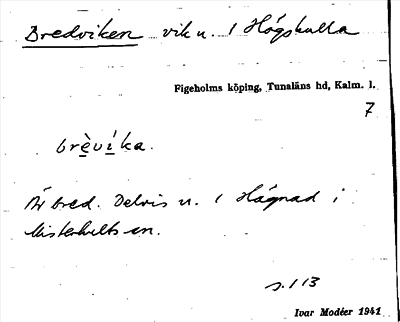 Bredviken vik u. / Högskulla
Figeholms köping, Tunaläns hd, Kalm. l.
7
brèvíka.
Är bred. Delvis u. / Hägnad i
Misterhults sn.
s. 113
Ivar Modéer 1941